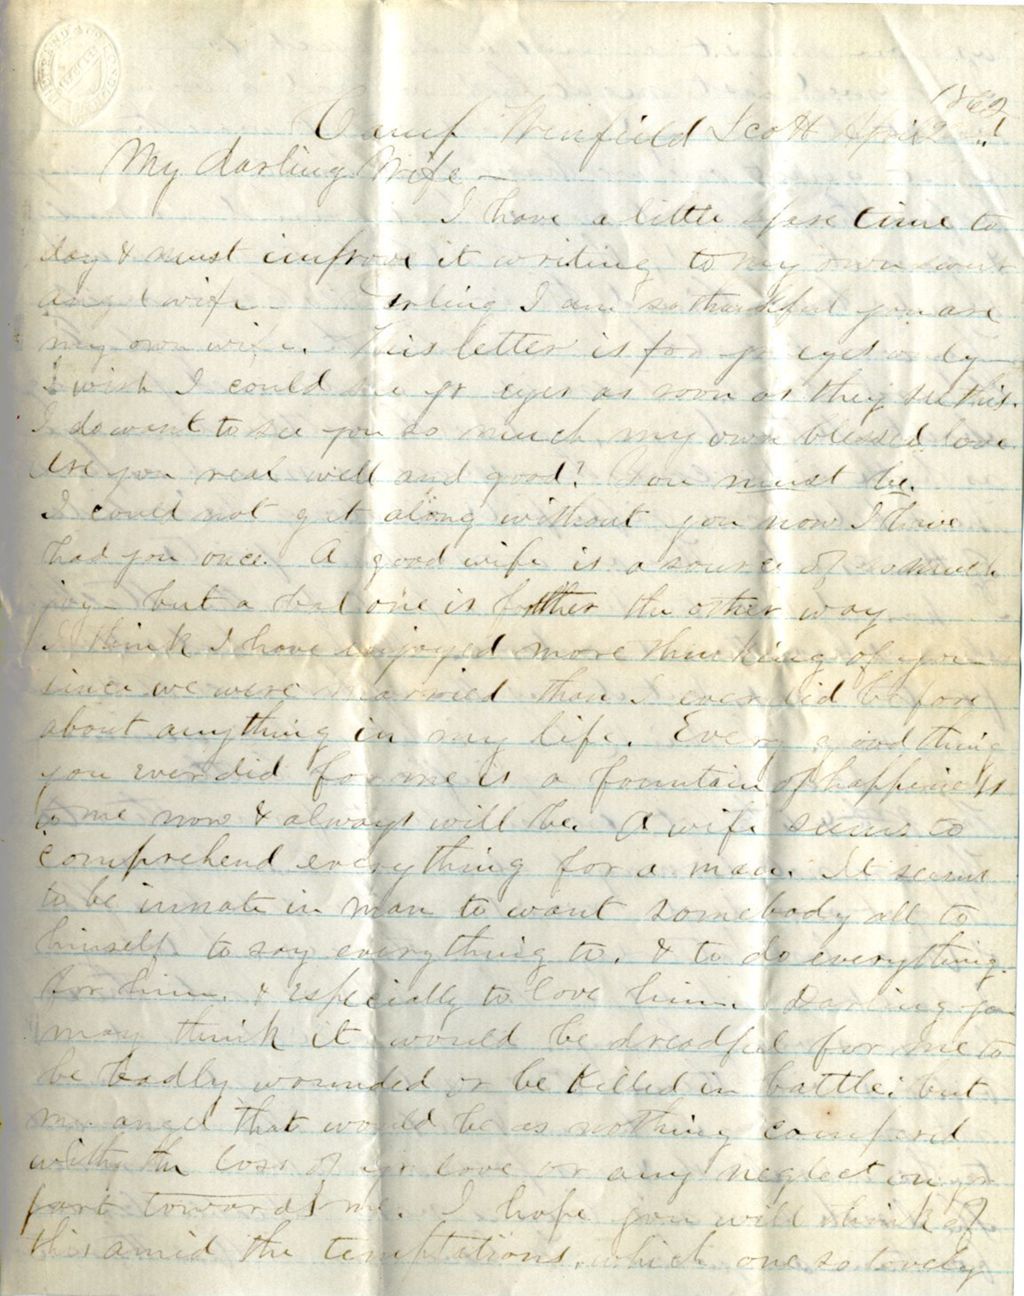 1862
Camp Winfield Scott April
My darling Wife —
I have a little spare time to
day & must improve it writing to my own sweet
angel wife — Darling I am so thankful you are
my own wife. This letter is for yr eyes only
I wish I could see yr eyes as soon as they see this.
I do want to see you so much my own blessed love
Are you real well and good? You must be.
I could not get along without you now I have
had you once. A good wife is a source of so much
joy — but a bad one is farther the other way
I think I have enjoyed more thinking of you
since we were married than I ever did before
about anything in my life. Every good thing
you ever did for me is a fountain of happiness
to me now & always will be. A wife seems to
comprehend everything for a man. It seems
to be innate in man to want somebody all to
himself to say everything to. & to do everything
for him. & especially to love him. Darling you
may think it would be dreadful for me to
be badly wounded or be killed in battle; but
my angel that would be as nothing compared
with the loss of yr love or any neglect on yr
part towards me. I hope you will think of
this amid the temptations which one so lovely